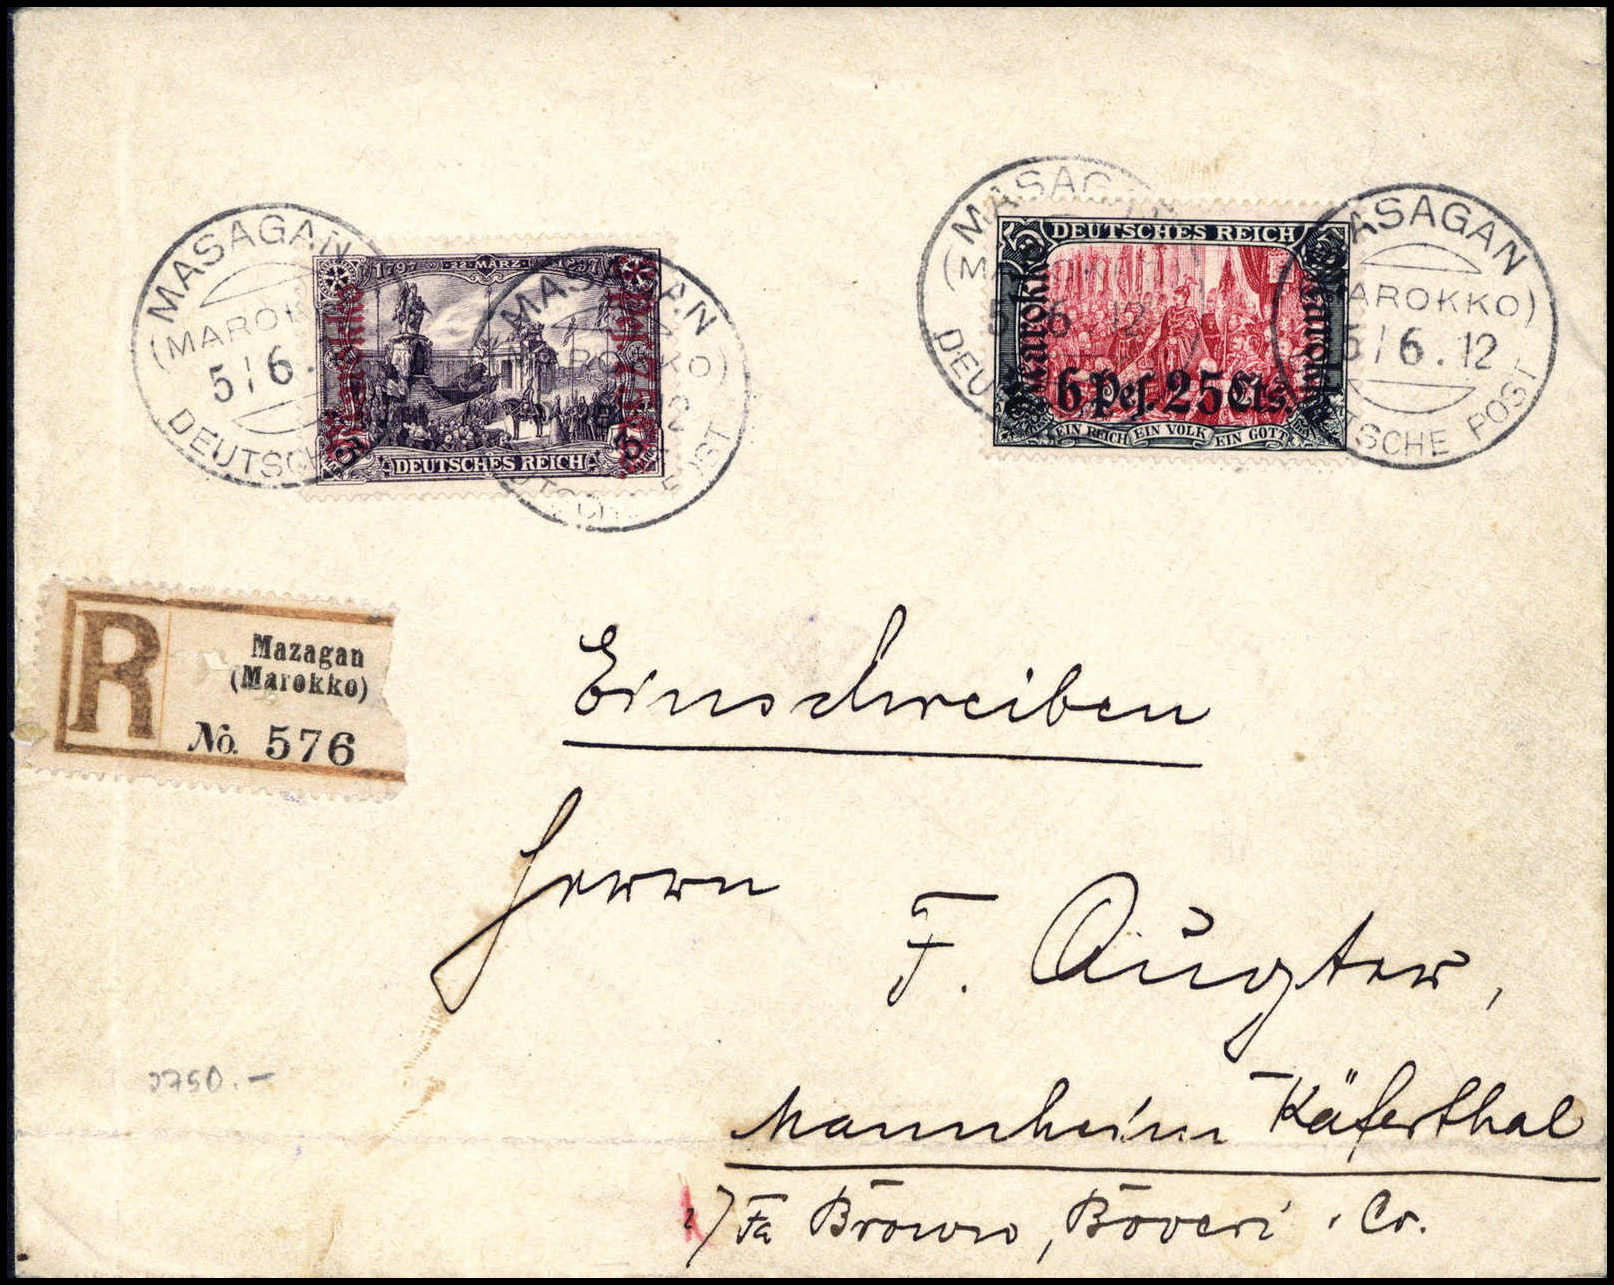 MASAGAN
(MAROKKO)
5/6.
DEUTSCHE
1797 22. MÄRZ 1897
Marokko
DEUTSCHES REICH
MASAGAN
MAROKKO)
POST
MASAGAN
5 6 12
DEU
5 DEUTSCHES REICH 5
Marokko
Marokko
6 Pes. 25 Cts.
EIN REICH EIN VOLK EIN GOTT
MASAGAN
MAROKKO)
5/6.12
TSCHE POST
R
Mazagan
(Marokko)
No. 576
Einschreiben
Herrn
F. Augter,
Mannheim-Käferthal
i/Fa Brown, Boveri & Co.
2750.-